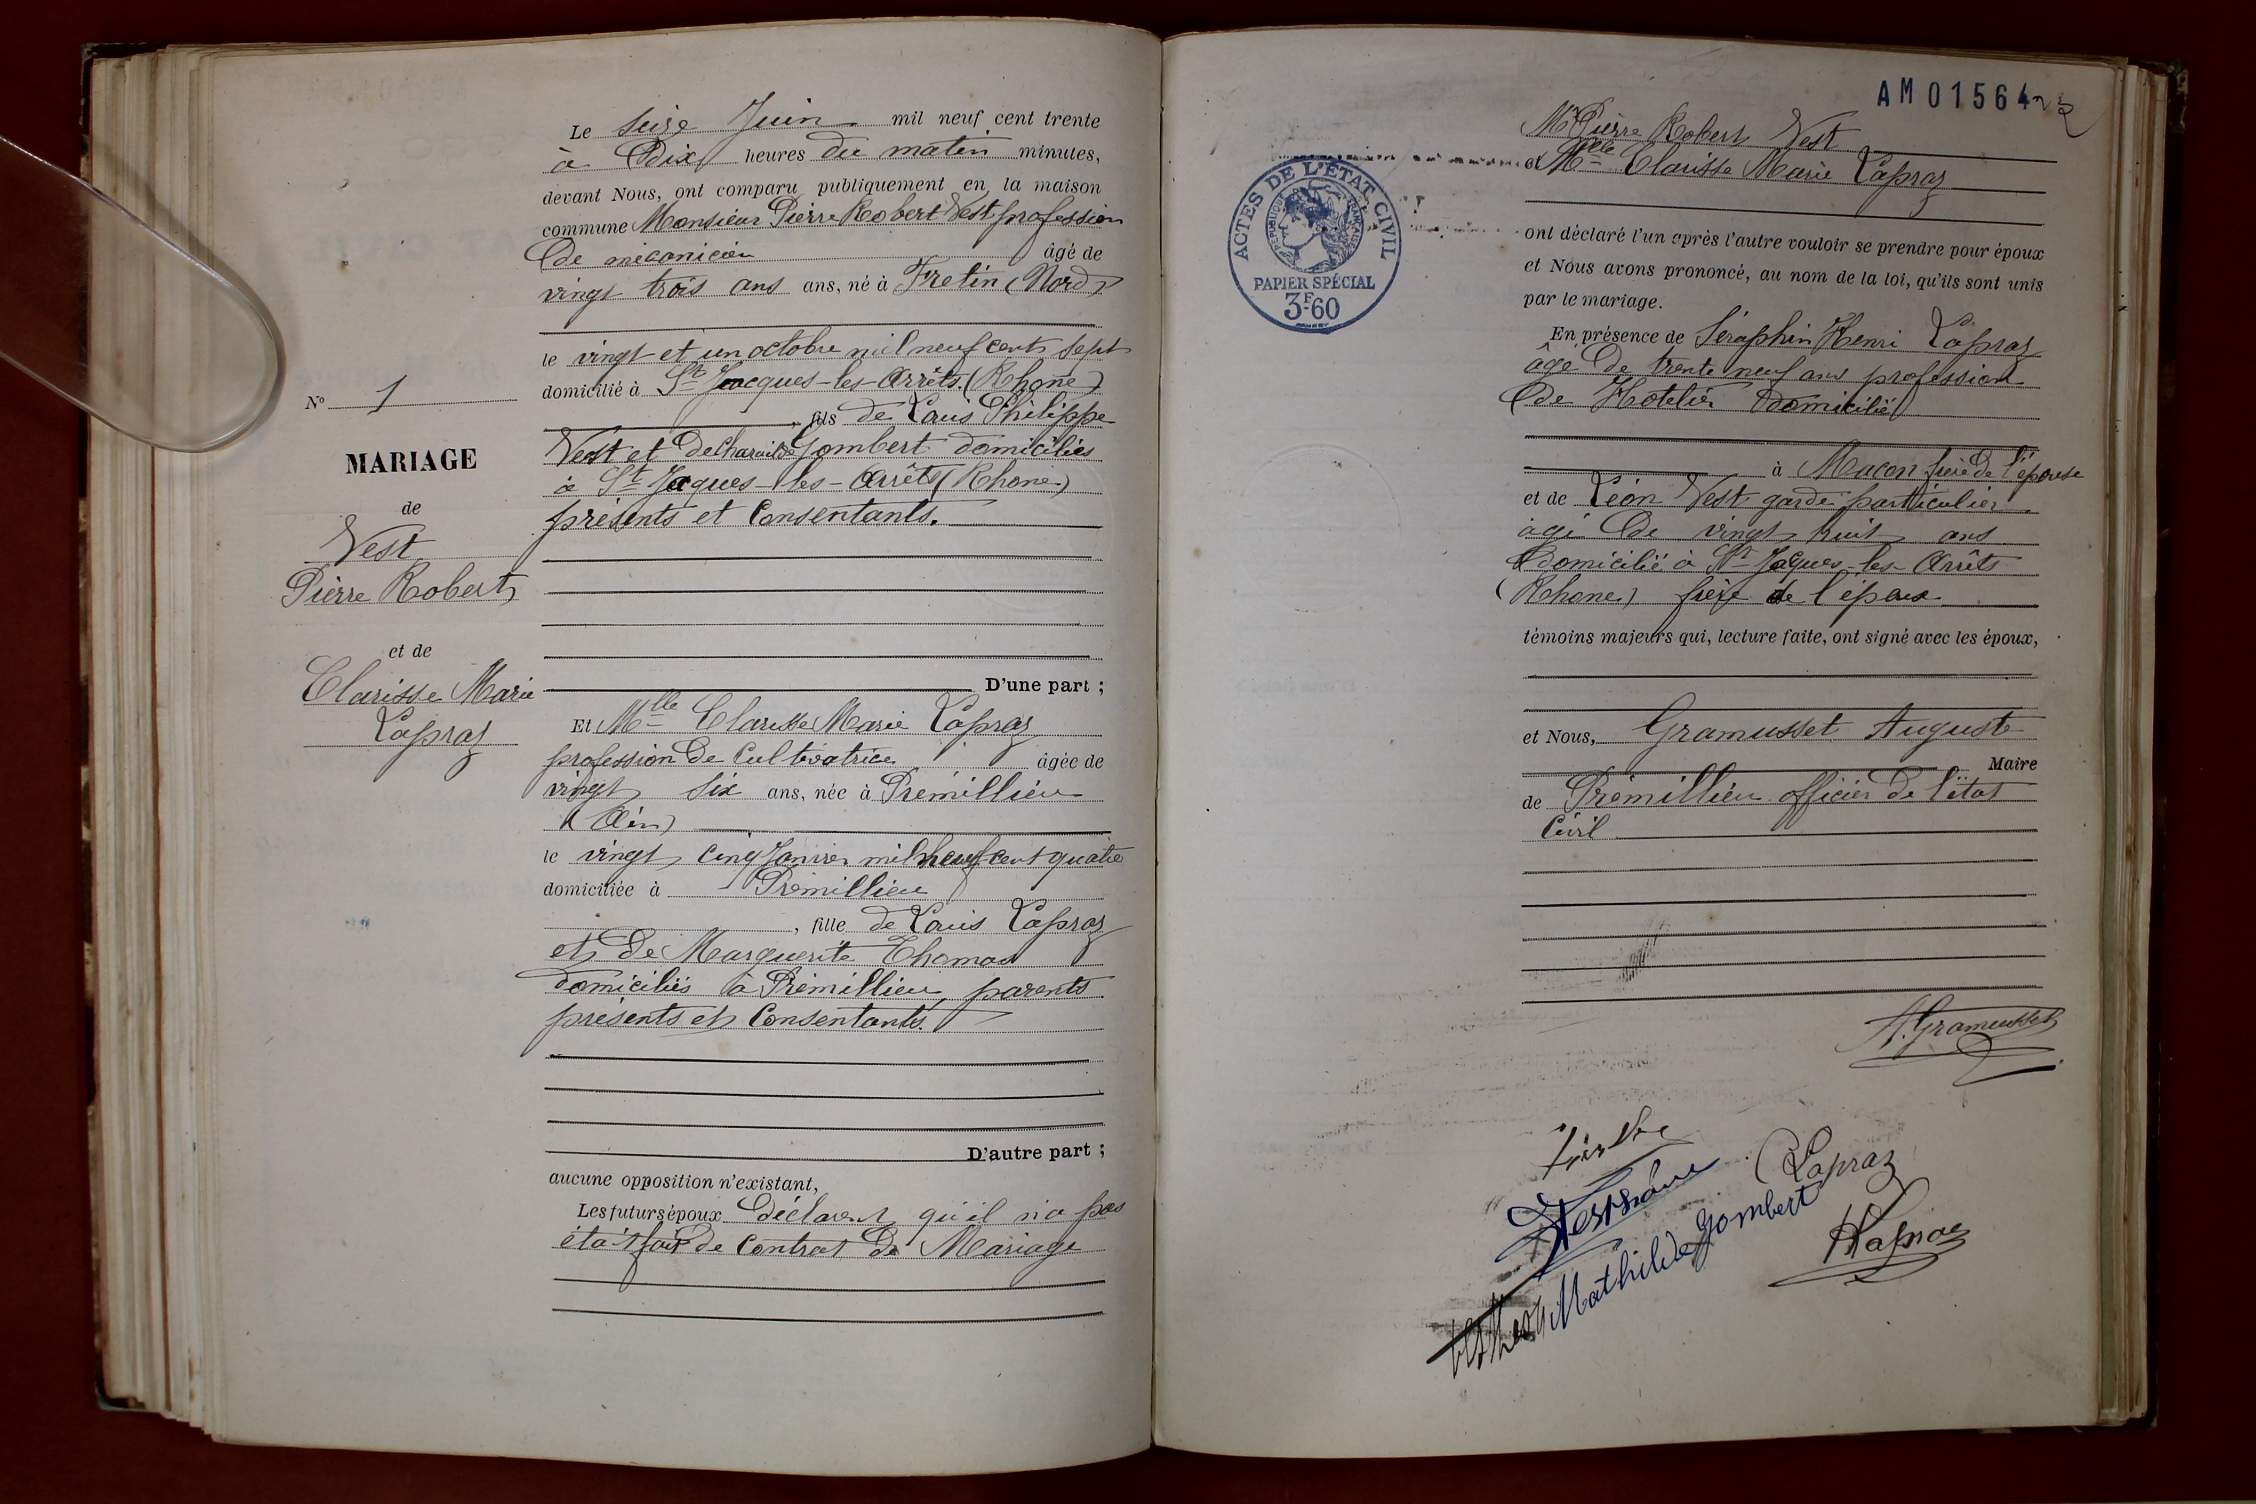 N° 1
MARIAGE
de
Vest
Pierre Robert
et de
Clarisse Marie
Lapraz
Le seize Juin mil neuf cent trente
à Dix heures du matin minutes,
devant Nous, ont comparu publiquement en la maison
commune Monsieur Pierre Robert Vest profession
de mécanicien âgé de
vingt trois ans ans, né à Fretin (Nord)
le vingt et un octobre mil neuf cent sept
domicilié à St Jacques-les-Arrêts (Rhône)
, fils de Louis Philippe
Vest et de Gombert domiciliés
à St Jacques-les-Arrêts (Rhone)
présents et Consentants.
D'une part ;
Et Mlle Clarisse Marie Lapraz
profession de Cultivatrice âgée de
vingt six ans, née à Prémillieu
(Ain)
le vingt cinq Janvier mil neuf cent quatre
domiciliée à Prémillieu
, fille de Louis Lapraz
et de Marguerite Thomas
domiciliés à Prémillieu, parents
présents et Consentants.
D'autre part ;
aucune opposition n'existant,
Les futurs époux déclarent qu'il n'a pas
été fait de Contrat de Mariage
AM01564
ACTES DE L'ETAT CIVIL
REPUBLIQUE FRANÇAISE
PAPIER SPÉCIAL
3F60
Mr Pierre Robert Vest
et Mlle Clarisse Marie Lapraz
ont déclaré l'un après l'autre vouloir se prendre pour époux
et Nous avons prononcé, au nom de la loi, qu'ils sont unis
par le mariage.
En présence de Séraphin Henri Lapraz
âgé de trente neuf ans profession
de Hotelier domicilié
à Macon frère de l'épouse
et de Léon Vest garde particulier
agé de vingt huit ans
domicilié à St Jacques-les-Arrêts
(Rhone) frère de l'époux
témoins majeurs qui, lecture faite, ont signé avec les époux,
et Nous, Gramusset Auguste
Maire
de Prémillieu officier de l'état
Civil
A. Gramusset
C Lapraz
Mathilde Gombert
H Lapraz